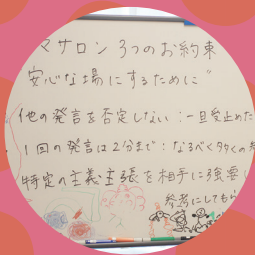 マサロン 3つのお約束
安心な場にするために"
他の発言を否定しない：一旦受止めた
1回の発言は2分まで：なるべく多くの
特定の主義・主張を相手に強要
参考にしてもら